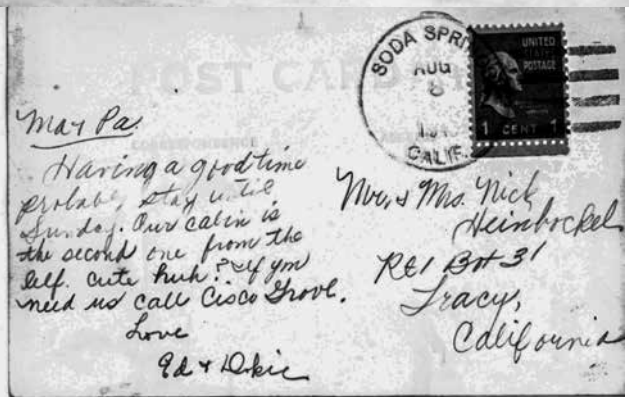 POST CARD
CORRESPONDENCE
SODA SPRI
AUG
8
CALIF.
UNITED
STATES
POSTAGE
1 CENT 1
Ma & Pa.
Having a good time
probably stay until
Sunday. Our cabin is
the second one from the
left. cute huh? If you
need us call Cisco Grove.
Love
Ed &
Mr. & Mrs. Nick
Heinbockel
Rt 1 Box 31
Tracy,
California